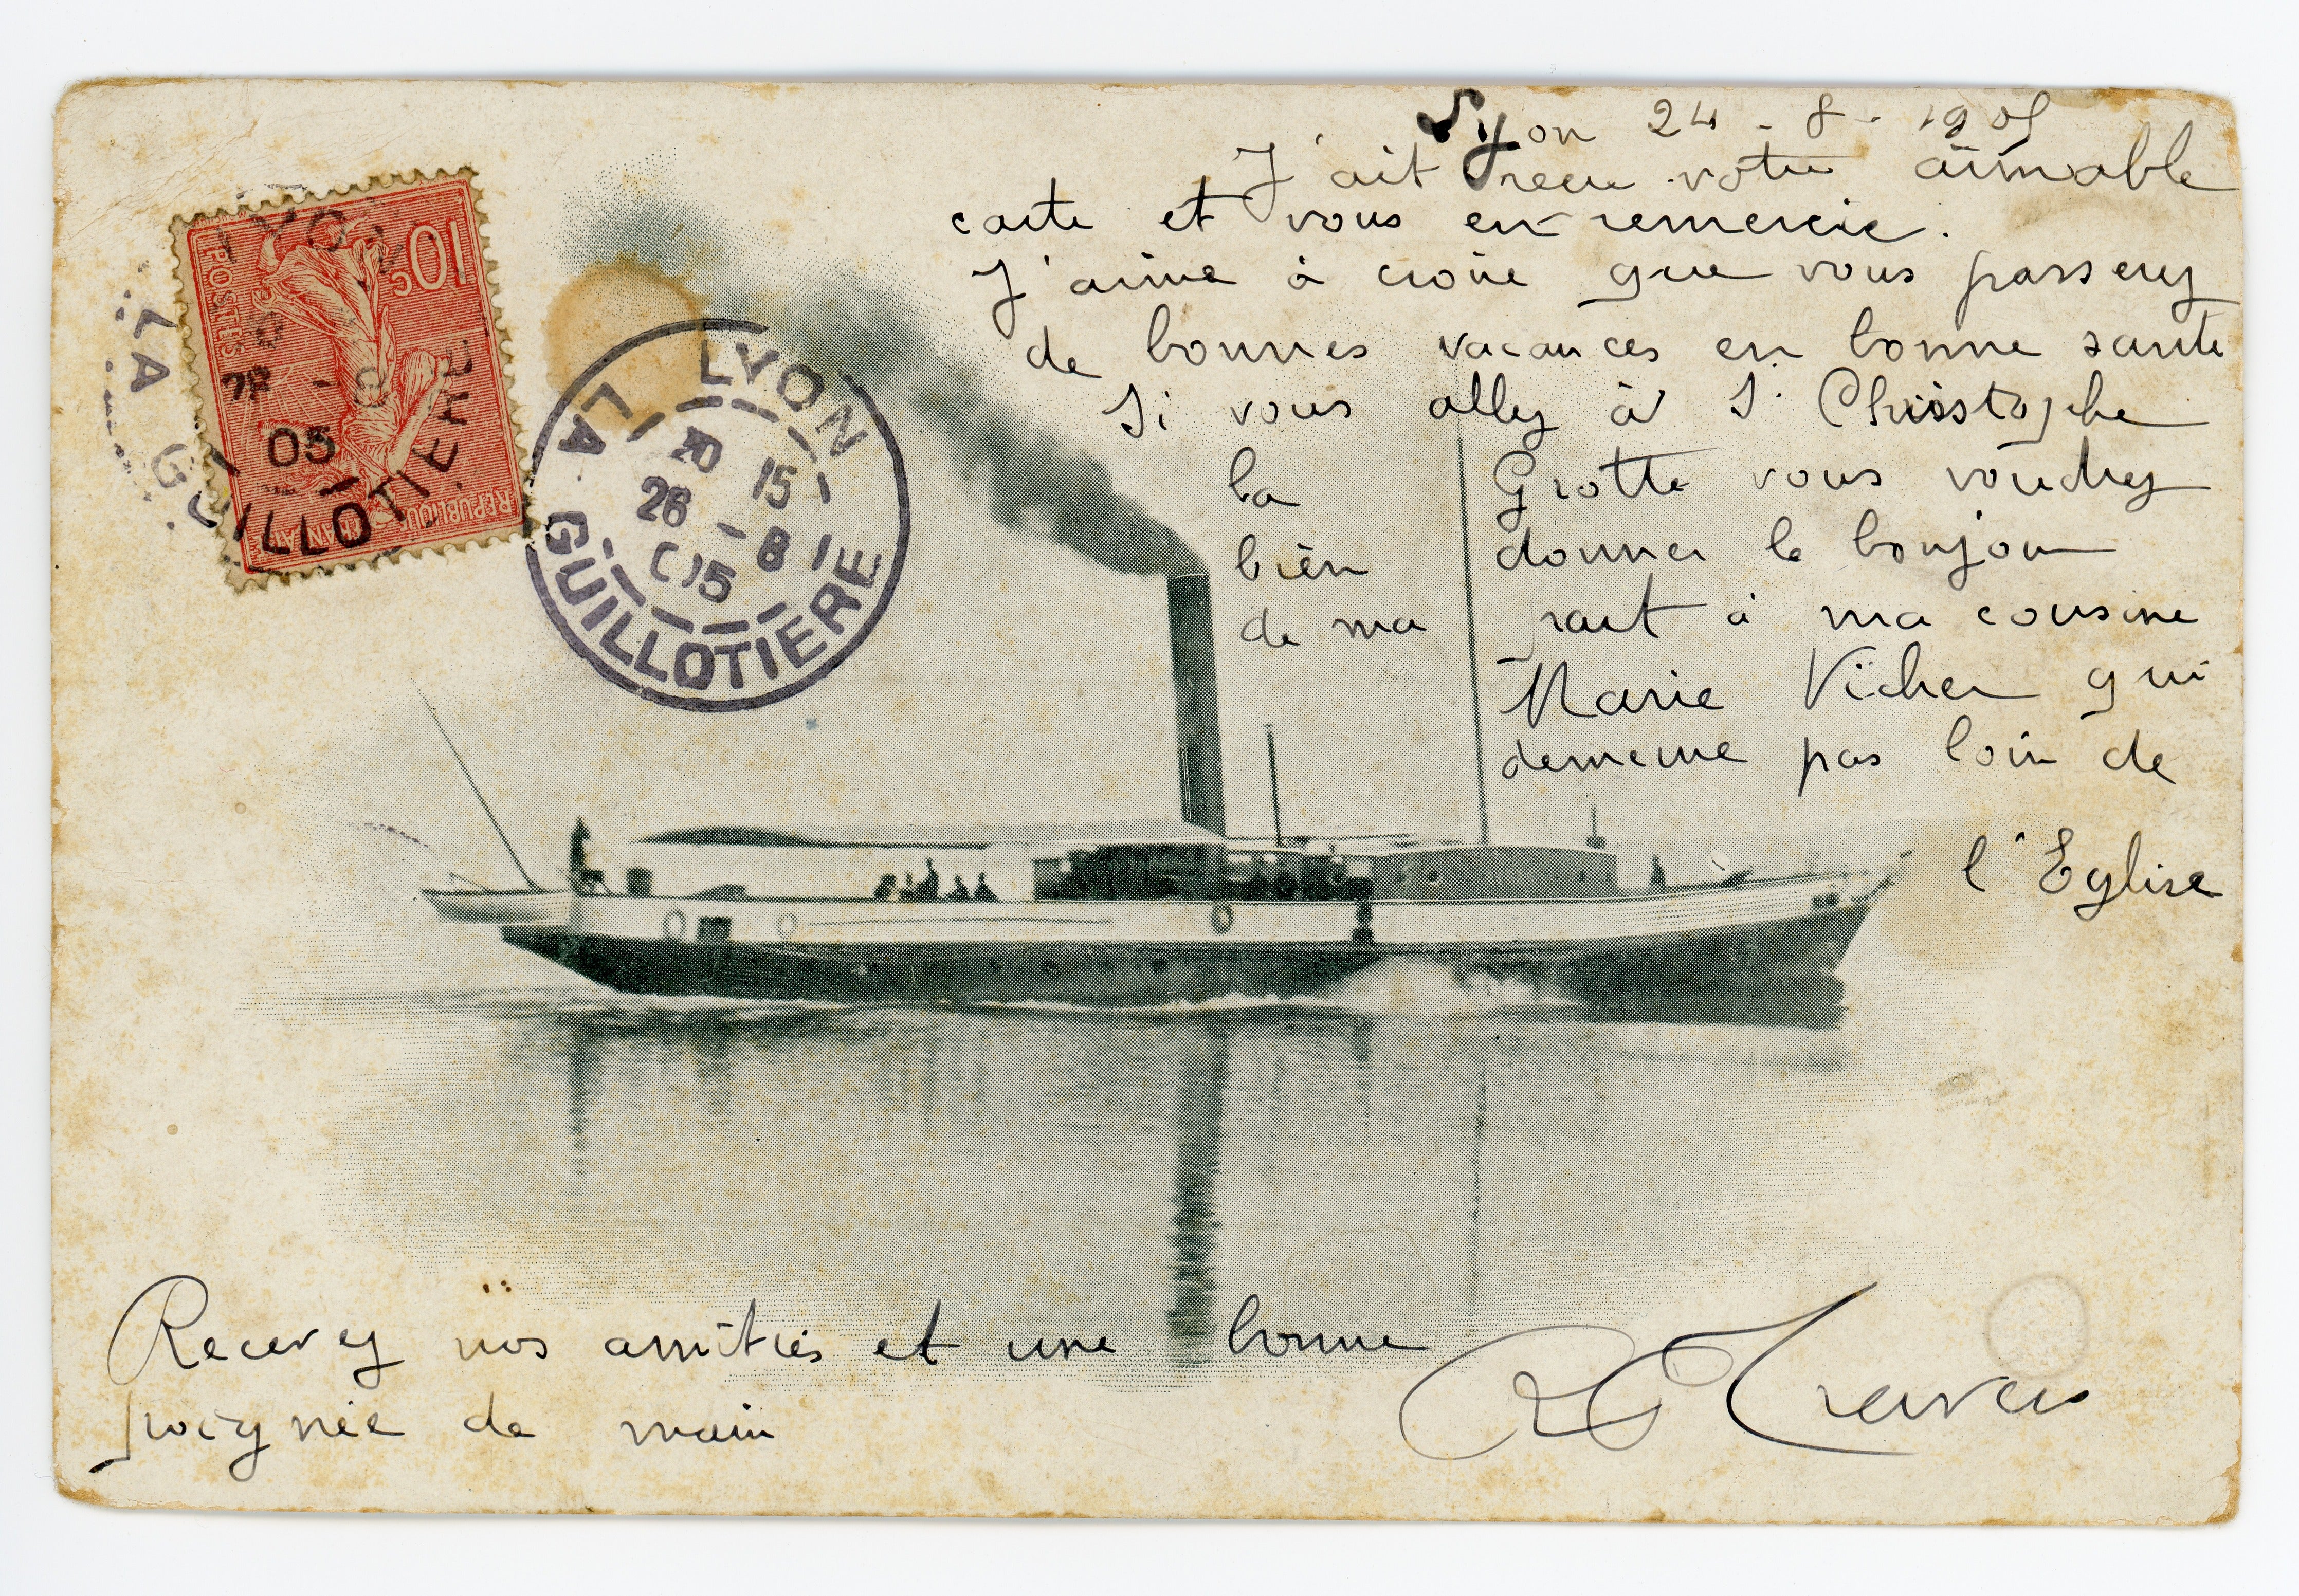 Lyon 24 - 8 - 1905
J'ait recu votre aimable
carte et vous en remercie.
J'aime à croire que vous passerez
de bonnes vacances en bonne santé
Si vous allez à S. Christophe
la Grotte vous voudrez
bien donner le bonjour
de ma part à ma cousine
Marie Vicher qui
demeure pas loin de
l'Eglise
Recevez nos amitiés et une bonne
poignée de main
10c
POSTES
REPUBLIQUE
FRANÇAISE
LYON
LA GUILLOTIERE
05
LYON
LA GUILLOTIERE
20 15
26 - 8
05